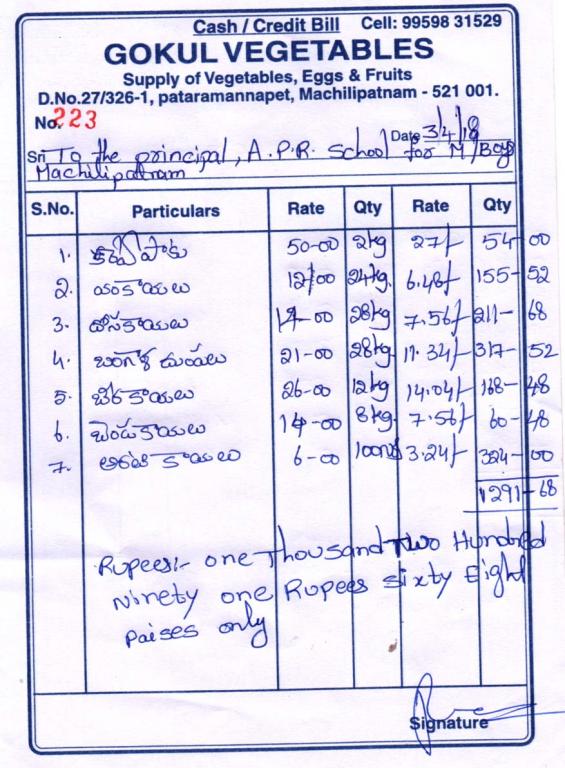 Cash / Credit Bill Cell: 99598 31529
GOKUL VEGETABLES
Supply of Vegetables, Eggs & Fruits
D.No.27/326-1, pataramannapet, Machilipatnam - 521 001.
No. 223
Date 3/4/18
Sri To the principal, A.P.R. School for M/Boys
Machilipatnam
S.No. Particulars Rate Qty Rate Qty
1. కరివేపాకు 50-00 2kg 27/- 54-00
2. వంకాయలు 12/00 24kg. 6.48/- 155-52
3. దోసకాయలు 14-00 28kg 7.56/- 211-68
4. బంగాళ దుంపలు 21-00 28kg 11.34/- 317-52
5. బీరకాయలు 26-00 12kg 14.04/- 168-48
6. బెండకాయలు 14-00 8kg. 7.56/- 60-48
7. అరటి కాయలు 6-00 100 3.24/- 324-00
1291-68
Rupees:- one Thousand Two Hundred
Ninety one Rupees sixty Eight
paises only
Signature